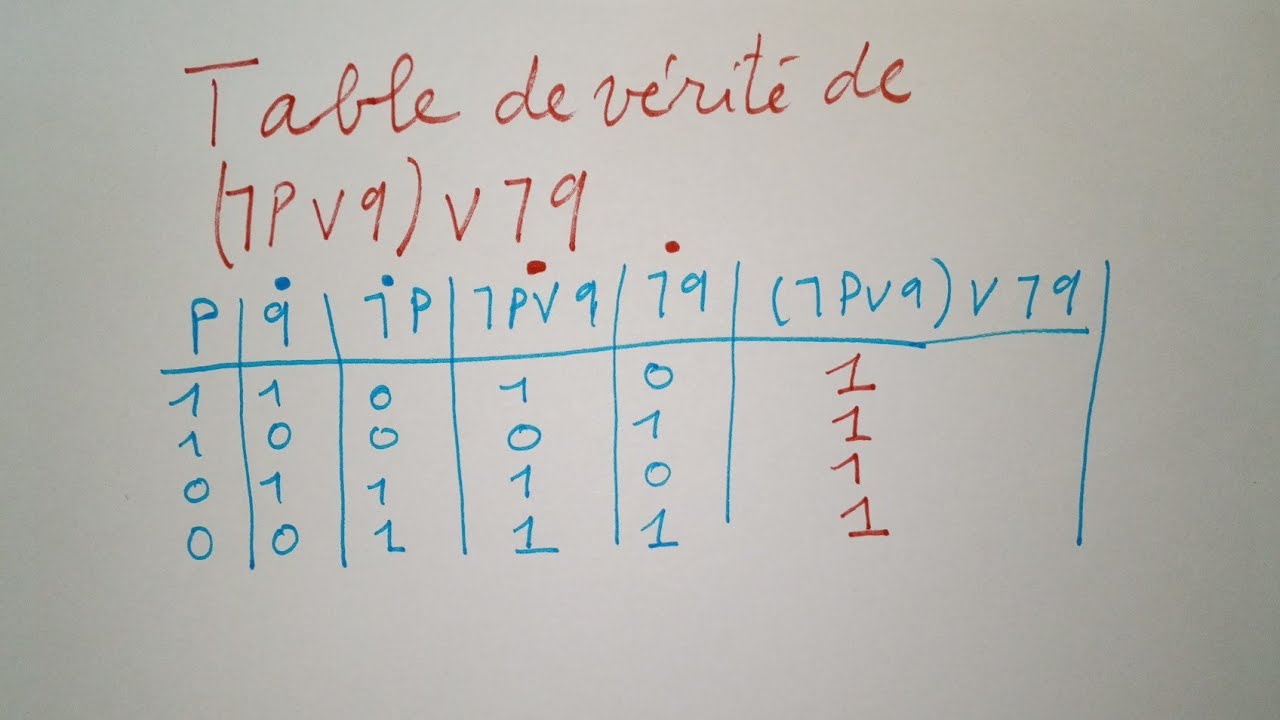 Table de vérité de
(¬P∨q)∨¬q
P q ¬P ¬P∨q ¬q (¬P∨q)∨¬q
1 1 0 1 0 1
1 0 0 0 1 1
0 1 1 1 0 1
0 0 1 1 1 1